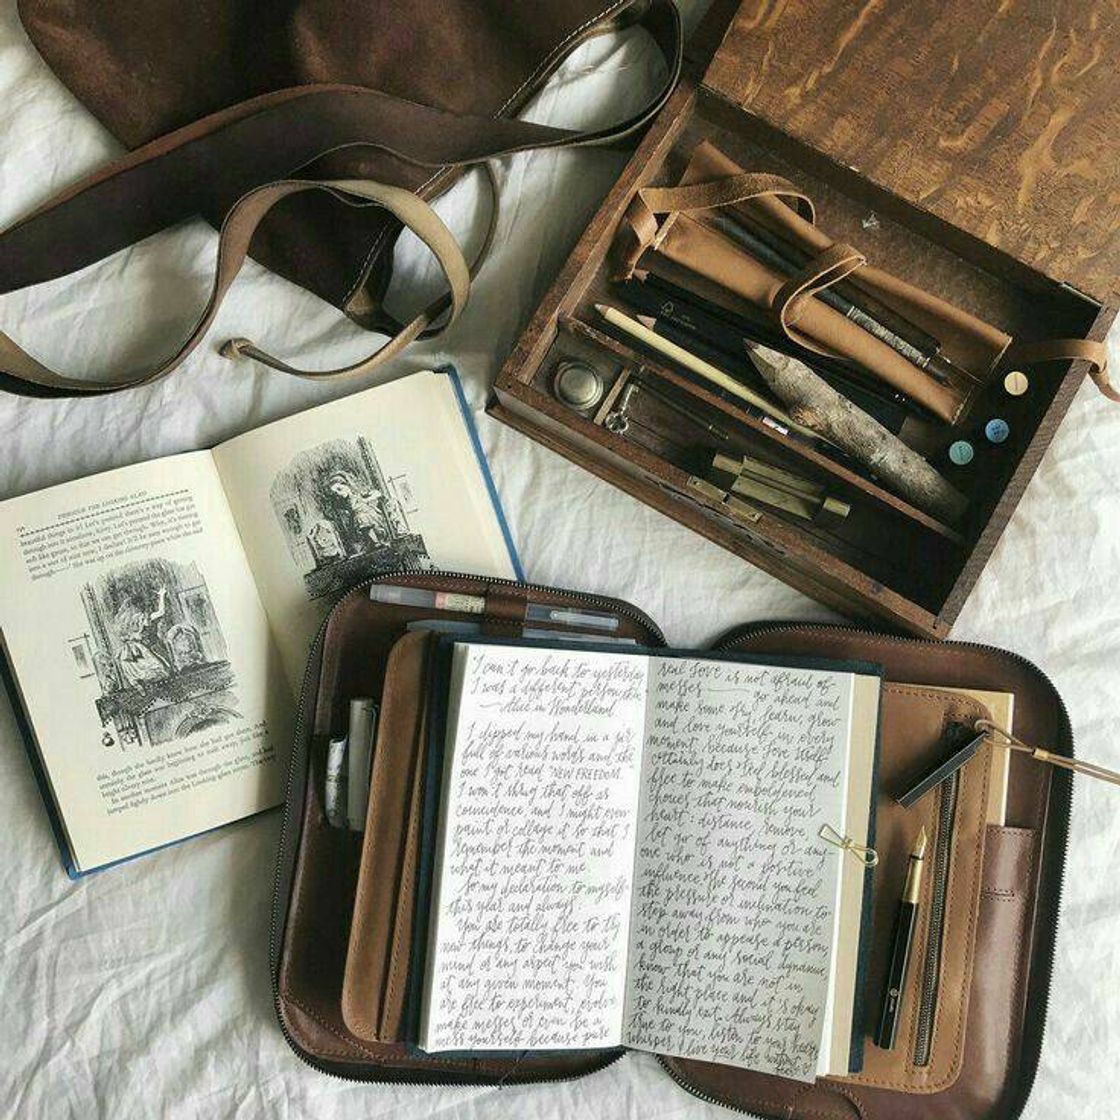 THROUGH THE LOOKING-GLASS
beautiful things in it! Let's pretend there's a way of getting
through into it somehow, Kitty. Let's pretend the glass has got
soft like gauze, so that we can get through. Why, it's turning
into a sort of mist now, I declare! It'll be easy enough to get
through——' She was up on the chimney-piece while she said
this, though she hardly knew how she had got there. And
certainly the glass was beginning to melt away, just like a
bright silvery mist.
In another moment Alice was through the glass, and had
jumped lightly down into the Looking-glass room.
I can't go back to yesterday
I was a different person then
— Alice in Wonderland
I dipped my hand in a jar
full of various words and the
one I got read "NEW FREEDOM."
I won't shrug that off as
coincidence, and I might even
paint or collage it so that I
remember the moment and
what it meant to me.
So my declaration to myself
this year and always:
You are totally free to try
new things, to change your
mind or any aspect you wish
at any given moment. You
are free to experiment, evolve
make messes or even be a
mess yourself because pure
real love is not afraid of
messes — go ahead and
make some of it, learn, grow
and love yourself in every
moment, because love itself
certainly does. Feel blessed and
free to make emboldened
choices that nourish your
heart: distance, remove,
let go of anything or any-
one who is not a positive
influence. The second you feel
the pressure or inclination to
step away from who you are
in order to appease a person
a group or any social dynamic
know that you are not in
the right place and it is okay
to kindly exit. Always stay
true to you, listen to your heart's
whisper & live your life without
fear!